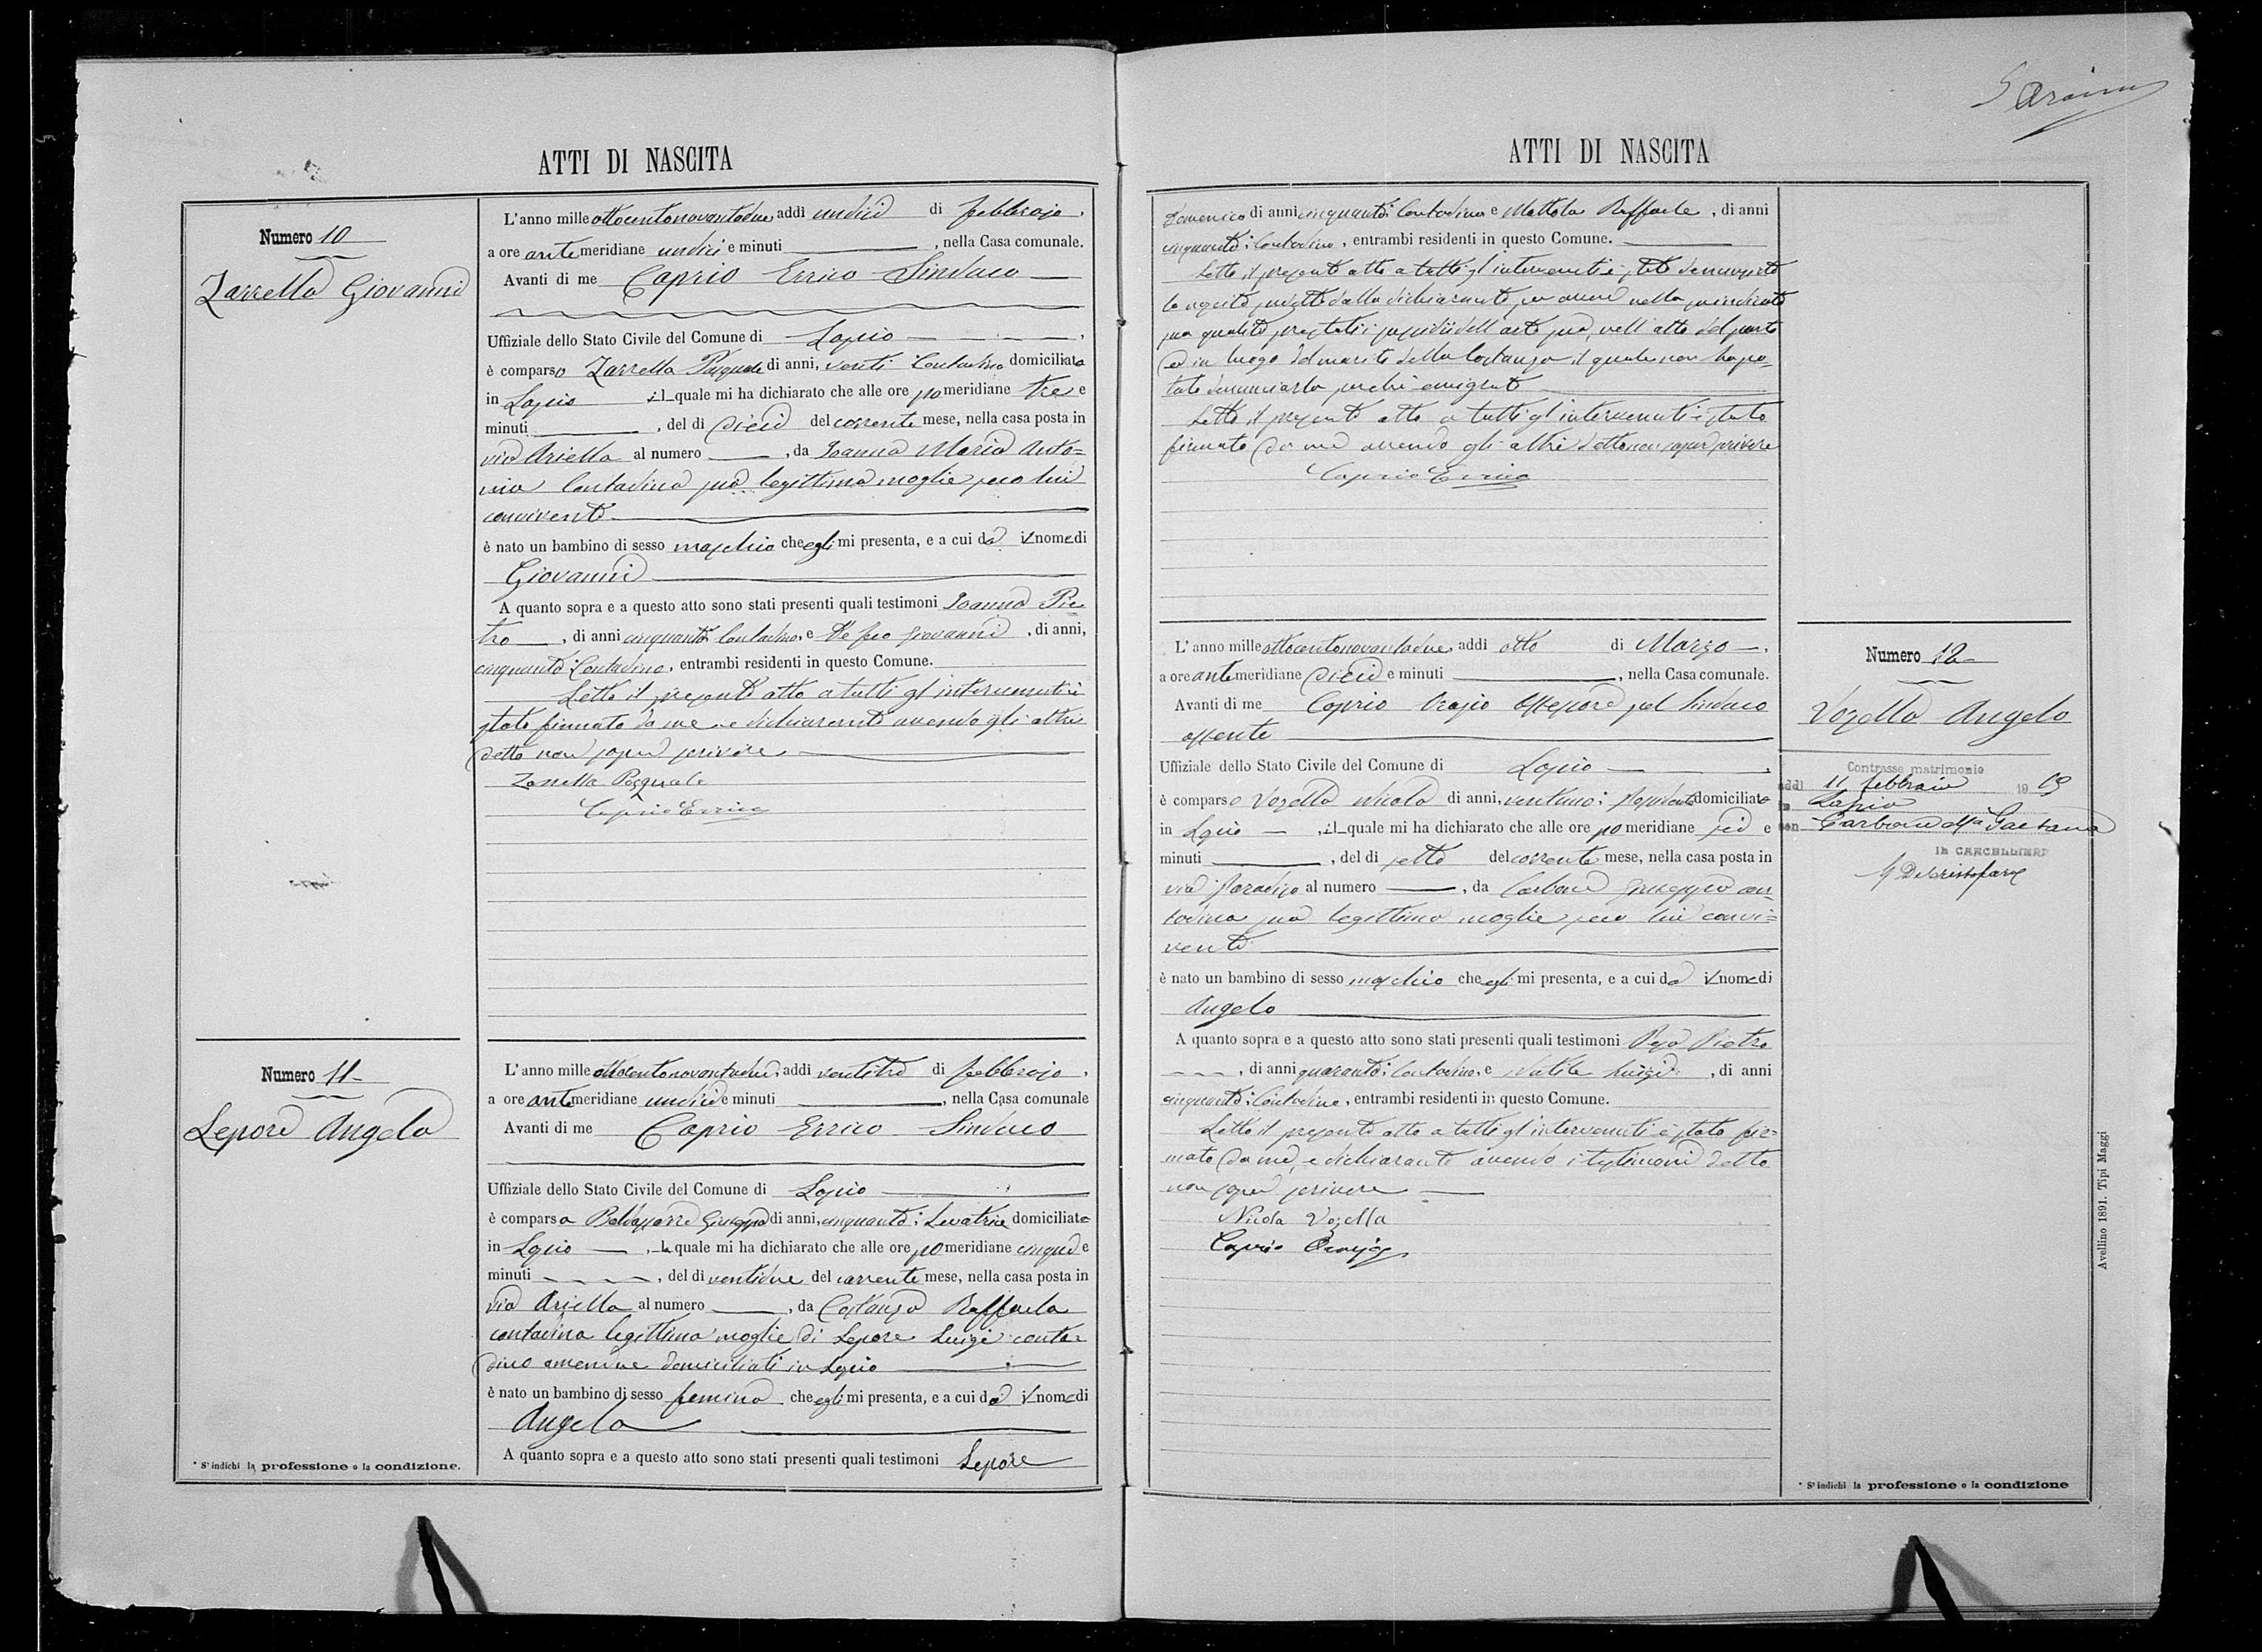 ATTI DI NASCITA
Numero 10
Zarrella Giovanni
L'anno mille ottocentonovantadue, addì undici di febbrajo,
a ore antemeridiane undici e minuti , nella Casa comunale.
Avanti di me Caprio Errico Sindaco
Uffiziale dello Stato Civile del Comune di Lapio
è comparso Zarrella Pasquale di anni, venti Contadino domiciliato
in Lapio il quale mi ha dichiarato che alle ore pomeridiane tre e
minuti , del dì dieci del corrente mese, nella casa posta in
via Ariella al numero , da Ioanna Maria Anto=
nia Contadina sua legittima moglie seco lui
convivente
è nato un bambino di sesso maschio che egli mi presenta, e a cui dà il nome di
Giovanni
A quanto sopra e a questo atto sono stati presenti quali testimoni Ioanna Pie
tro , di anni cinquanta Contadino, e De feo Giovanni , di anni,
cinquanta Contadino, entrambi residenti in questo Comune.
Letto il presente atto a tutti gl'intervenuti è
stato firmato da me e dichiarante avendo gli altri
detto non saper scrivere
Zarrella Pasquale
Caprio Errico
Numero 11
Lepore Angela
L'anno mille ottocentonovantadue, addì ventitre di febbrajo,
a ore antemeridiane undici e minuti , nella Casa comunale
Avanti di me Caprio Errico Sindaco
Uffiziale dello Stato Civile del Comune di Lapio
è comparsa Baldassarre Giuseppa di anni, cinquanta Levatrice domiciliata
in Lapio , la quale mi ha dichiarato che alle ore pomeridiane cinque e
minuti , del dì ventidue del corrente mese, nella casa posta in
via Ariella al numero , da Costanza Raffaela
contadina legittima moglie di Lepore Luigi conta=
dino amendue domiciliati in Lapio
è nato un bambino di sesso femina che egli mi presenta, e a cui dà il nome di
Angela
A quanto sopra e a questo atto sono stati presenti quali testimoni Lepore
* S'indichi la professione o la condizione.
ATTI DI NASCITA
Domenico di anni cinquanta Contadino e Mottola Raffaele , di anni
cinquanta Contadino, entrambi residenti in questo Comune.
Letto il presente atto a tutti gl'intervenuti è stata denunziata
la nascita suddetta dalla dichiarante per avere nella suindicata
sua qualità prestati i sussidii dell'arte sua, nell'atto del parto
ed in luogo del marito della Costanza il quale non ha po=
tuto denunciarla perchè emigrato
Letto il presente atto a tutti gl'intervenuti è stato
firmato da me avendo gli altri detto non saper scrivere
Caprio Errico
L'anno mille ottocentonovantadue, addì otto di Marzo
a ore antemeridiane dieci e minuti , nella Casa comunale.
Avanti di me Caprio Orazio Assessore pel Sindaco
assente
Uffiziale dello Stato Civile del Comune di Lapio
è comparso Vozella Nicola di anni, ventuno domiciliato
in Lapio , il quale mi ha dichiarato che alle ore pomeridiane sei e
minuti , del dì sette del corrente mese, nella casa posta in
via Paradiso al numero , da Carbone Giuseppa con
tadina sua legittima moglie seco lui convi=
vente
è nato un bambino di sesso maschio che egli mi presenta, e a cui dà il nome di
Angelo
A quanto sopra e a questo atto sono stati presenti quali testimoni Pietro
, di anni quaranta Contadino, e Luigi , di anni
cinquanta Contadino, entrambi residenti in questo Comune.
Letto il presente atto a tutti gl'intervenuti è stato fir=
mato da me, e dichiarante avendo i testimoni detto
non saper scrivere
Nicola Vozella
Caprio Orazio
Numero 12
Vozella Angelo
Contrasse matrimonio
addì 11 febbraio 1909
in Lapio
con Carbone Gaetana
IL CANCELLIERE
* S'indichi la professione o la condizione
Avellino 1891. Tipi Maggi